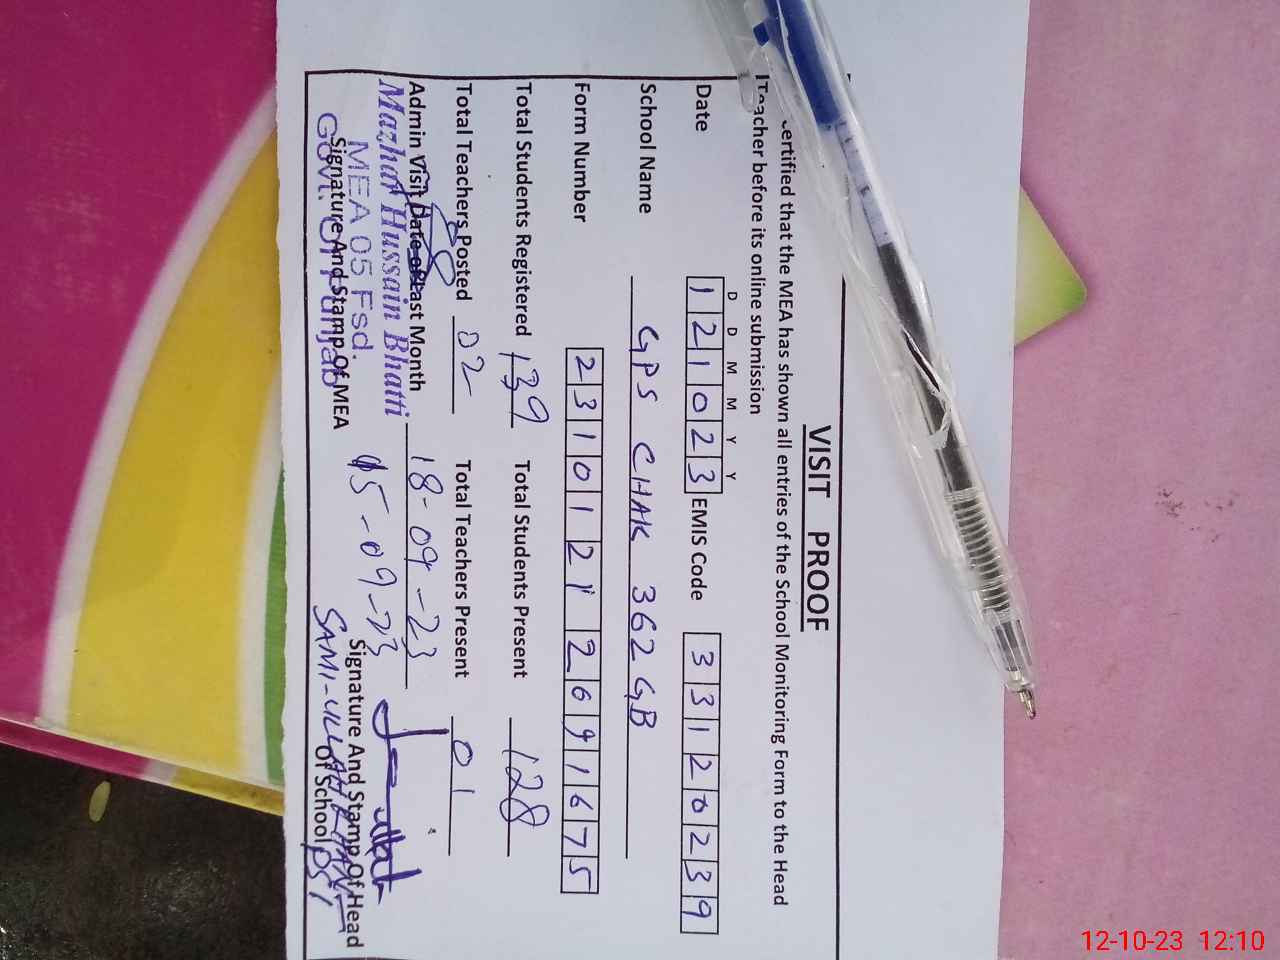 VISIT PROOF
ertified that the MEA has shown all entries of the School Monitoring Form to the Head
Teacher before its online submission
D D M M Y Y
Date 1 2 1 0 2 3 EMIS Code 3 3 1 2 0 2 3 9
School Name GPS CHAK 362 GB
Form Number 2 3 1 0 1 2 1 2 6 9 1 6 7 5
Total Students Registered 139 Total Students Present 128
Total Teachers Posted 02 Total Teachers Present 01
Admin Visit Date of Last Month 18-09-23
Mazhar Hussain Bhatti
MEA 05 Fsd.
Govt. Of Punjab
05-09-23
Signature And Stamp Of MEA
Signature And Stamp Of Head
Of School
SAMI-ULLAH KHAN
PST
12-10-23 12:10